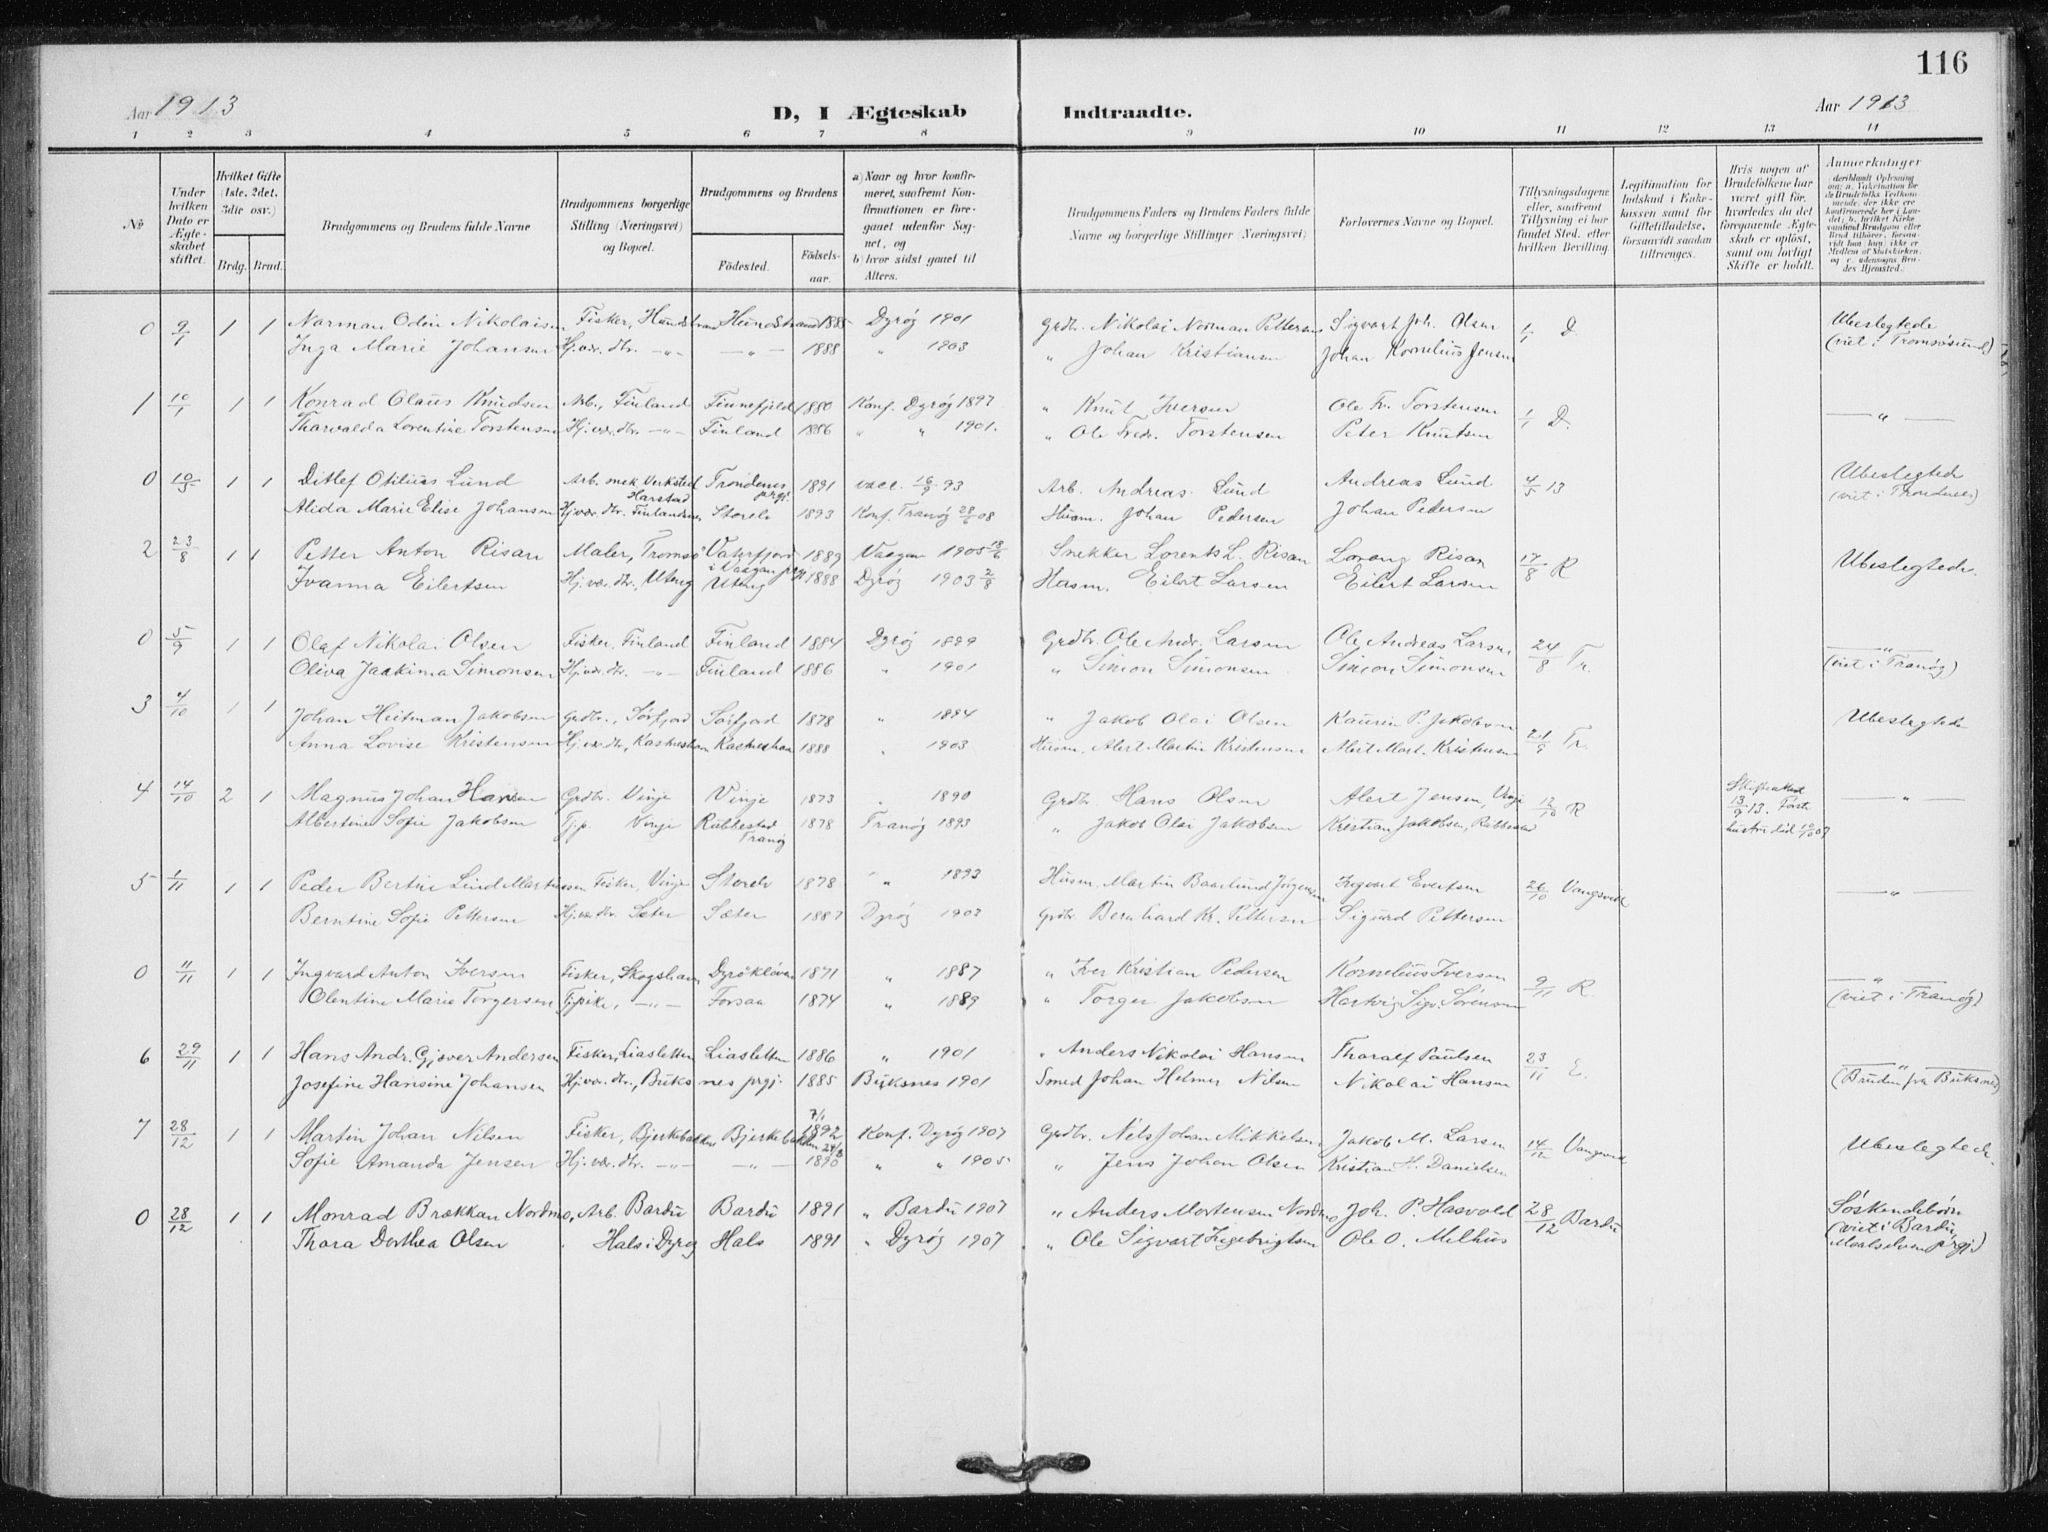 116
Aar 1913 D, I Ægteskab Indtraadte. Aar 1913
1 2 3 4 5 6 7 8 9 10 11 12 13 14
No
Under hvilken Dato er Ægteskabet stiftet.
Hvilket Gifte (1ste, 2det, 3die osv.)
Brdg. Brud.
Brudgommens og Brudens fulde Navne
Brudgommens borgerlige Stilling (Næringsvei) og Bopæl.
Brudgommens og Brudens
Fødested. Fødselsaar.
a) Naar og hvor konfirmeret, saafremt Konfirmationen er foregaaet udenfor Sognet, og
b) hvor sidst gaaet til Alters.
Brudgommens Faders og Brudens Faders fulde Navne og borgerlige Stillinger (Næringsvei)
Forlovernes Navne og Bopæl.
Tillysningsdagene eller, saafremt Tillysning ei har fundet Sted, efter hvilken Bevilling.
Legitimation for Indskud i Enkekassen samt for Giftetilladelse, forsaavidt saadan tiltrænges.
Hvis nogen af Brudefolkene har været gift før, hvorledes da det foregaaende Ægteskab er opløst, samt om lovligt Skifte er holdt.
Anmerkninger
0 9/1 1 1 Narman Odin Nikolaisen Fisker, Hundstrand Hundstrand 1885 Dyrøy 1901 Grdbr. Nikolai Norman Pettersen Sigvart Joh. Olsen 1/1 D. Ubeslegtede
Inga Marie Johansen Hj.vær. dtr. -"- -"- 1888 " 1903 " Johan Kristiansen Johan Kornelius Jensen (viet i Tromsøsund)
1 10/1 1 1 Konrad Olaus Knudsen Arb., Finland Finnefjeld 1880 Konf. Dyrøy 1897 " Knut Iversen Ole Fr. Torstensen 1/1 D. — " —
Tharvalda Lorentine Torstensen Hj.vær. dtr. -"- Finland 1886 " " 1901. " Ole Fredr. Torstensen Peter Knutsen
0 10/5 1 1 Ditlef Otilius Lund Arb. mek. Verksted Harstad Trondenes prgj. 1891 vacc. 16/9 93 Arb. Andreas Lund Andreas Lund 4/5 13 Ubeslegtede
Alida Marie Elise Johansen Hj.vær. dtr. Finlandsnes Storelv 1893 Konf. Tranøy 28/6 08 Husm. Johan Pedersen Johan Pedersen (viet i Trondenes)
2 23/8 1 1 Petter Anton Risan Maler, Tromsø Vaterfjord i Vaagan prgj 1889 Vaagan 1905 18/6 Snekker Lorents L. Risan Lorang Risan 17/8 R Ubeslegtede.
Ivanna Eilertsen Hj.vær. dtr., Uteng Uteng 1888 Dyrøy 1903 2/8 Husm. Eilert Larsen Eilert Larsen
0 5/9 1 1 Olaf Nikolai Olsen Fisker, Finland Finland 1884 Dyrøy 1899 Grdbr. Ole Andr. Larsen Ole Andreas Larsen, 24/8 Tr. — " —
Oliva Jaakima Simonsen Hj.vær. dtr. -"- Finland 1886 " 1901 " Simon Simonsen Simon Simonsen (viet i Tranøy)
3 4/10 1 1 Johan Heitman Jakobsen Grdbr., Sørfjord Sørfjord 1878 " 1894 " Jakob Olai Olsen Kaurin P. Jakobsen Ubeslegtede
Anna Lovise Kristensen Hj.vær. dtr., Kastneshavn Kastneshavn 1888 " 1903 Husm. Alert Martin Kristensen Alert Mart. Kristensen 21/9 Tr.
4 14/10 2 1 Magnus Johan Hansen Grdbr. Vinje Vinje 1873 " 1890 Grdbr Hans Olsen Alert Jensen, Vinje 12/10 R Skifteattest 13/9 13. Forr. — " —
Albertine Sofie Jakobsen Tjp. Vinje Rubbestad Tranøy 1878 Tranøy 1893 " Jakob Olai Jakobsen Kristian Jakobsen, Rubbestad hustru död 10/10 07
5 1/11 1 1 Peder Bertin Lind Martinussen Fisker, Vinje Storelv 1878 " 1893 Husm. Martin Baarlund Jørgensen Ingvart Evertsen 26/10 Vangsvik — " —
Berntine Sofie Pettersen Hj.vær. dtr. Sæter Sæter 1887 Dyrøy 1903 Grdbr Bernhard Kr. Pettersen Sigurd Pettersen
0 11/11 1 1 Ingvard Anton Iversen Fisker, Skogshavn Dyrökløven 1871 " 1887 " Iver Kristian Pedersen Kornelius Iversen 9/11 R. — " —
Olentine Marie Torgersen Tjpike, -"- Forsaa 1874 " 1889 " Torger Jakobsen Hartvig Sigv. Sörensen (viet i Tranøy)
6 29/11 1 1 Hans Andr. Gjæver Andersen Fisker, Liasletten Liasletten 1886 " 1901 " Anders Nikolai Hansen Tharalf Paulsen 23/11 E. — " —
Josefine Hansine Johansen Hj.vær. dtr., Buksnes prgj. 1885 Buksnes 1901 Smed Johan Helmer Nilsen Nikolai Hansen (Bruden fra Buksnes)
7 28/12 1 1 Martin Johan Nilsen Fisker, Bjerkebakken Bjerkebakken 7/1 1892 Konf. Dyrøy 1907 Grdbr. Nils Johan Mikkelsen Jakob M. Larsen 14/12 Vangsvik Ubeslegtede.
Sofie Amanda Jensen Hj.vær. dtr. -"- -"- 24/3 1890 " " 1905 " Jens Johan Olsen Kristian H. Danielsen
0 28/12 1 1 Monrad Brækkan Nordmo, Arb. Bardu Bardu 1891 " Bardu 1907 " Anders Mortensen Nordmo Joh. P. Hasvold 28/12 Bardu Søskendebørn
Thora Dorthea Olsen Hals i Dyrøy Hals 1891 " Dyrøy 1907 " Ole Sigvart Ingebrigtsen Ole O. Melhus (viet i Bardu, Maalselven prgj.)